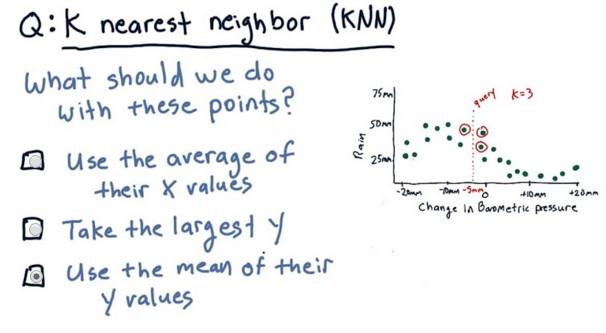 Q: K nearest neighbor (KNN)
What should we do
with these points?
Use the average of
their X values
Take the largest Y
Use the mean of their
Y values
query K=3
75mm
50mm
25mm
Rain
-20mm -10mm -5mm 0 +10mm +20mm
Change in Barometric pressure